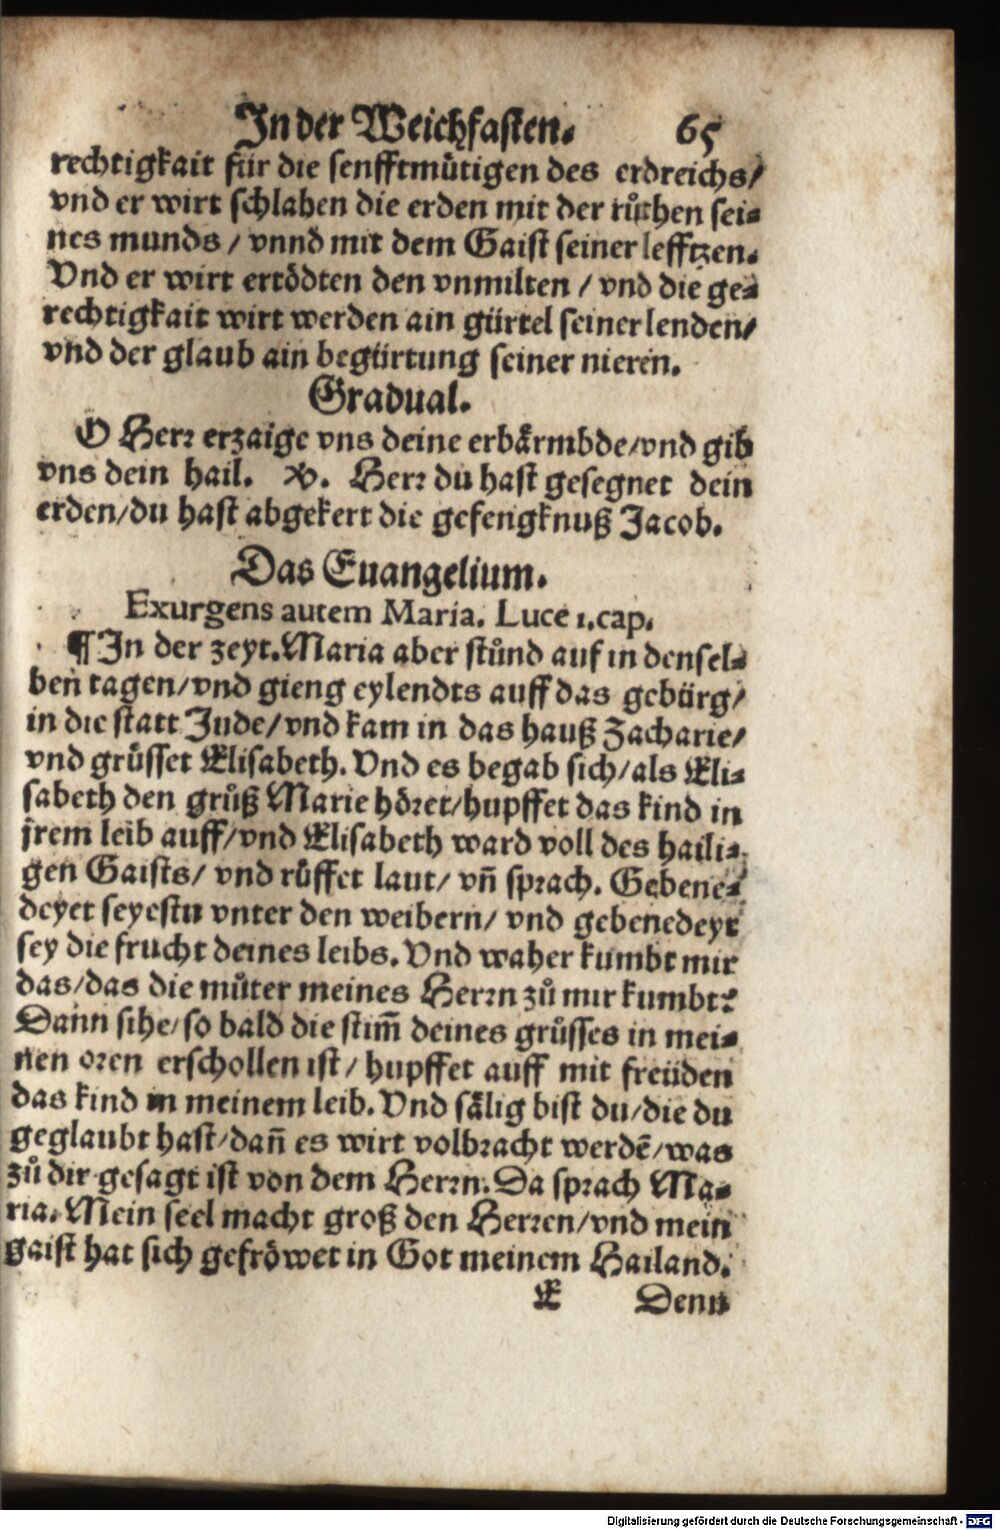 In der Weichfasten. 65
rechtigkait für die senfftmůtigen des erdreichs/
vnd er wirt schlahen die erden mit der růthen sei-
nes munds / vnnd mit dem Gaist seiner lefftzen.
Vnd er wirt ertödten den vnmilten / vnd die ge-
rechtigkait wirt werden ain gürtel seiner lenden/
vnd der glaub ain begürtung seiner nieren.
Gradual.
O Herr erzaige vns deine erbärmbde/vnd gib
vns dein hail. ℣. Herr du hast gesegnet dein
erden/du hast abgekert die gefengknuß Jacob.
Das Euangelium.
Exurgens autem Maria. Luce 1.cap.
¶ In der zeyt. Maria aber stůnd auf in densel-
ben tagen/vnd gieng eylendts auff das gebürg/
in die statt Jude/vnd kam in das hauß Zacharie/
vnd grůsset Elisabeth. Vnd es begab sich/als Eli-
sabeth den grůß Marie höret/hupffet das kind in
jrem leib auff/vnd Elisabeth ward voll des haili-
gen Gaists/ vnd růffet laut/ vñ sprach. Gebene-
deyet seyestu vnter den weibern/ vnd gebenedeyt
sey die frucht deines leibs. Vnd waher kumbt mir
das/das die můter meines Herrn zů mir kumbt?
Dann sihe/so bald die stim̃ deines grůsses in mei-
nen oren erschollen ist/ hupffet auff mit freüden
das kind in meinem leib. Vnd sälig bist du/die du
geglaubt hast/dañ es wirt volbracht werdẽ/was
zů dir gesagt ist von dem Herrn. Da sprach Ma-
ria. Mein seel macht groß den Herren/vnd mein
gaist hat sich gefröwet in Got meinem Hailand.
E Denn
Digitalisierung gefördert durch die Deutsche Forschungsgemeinschaft - DFG